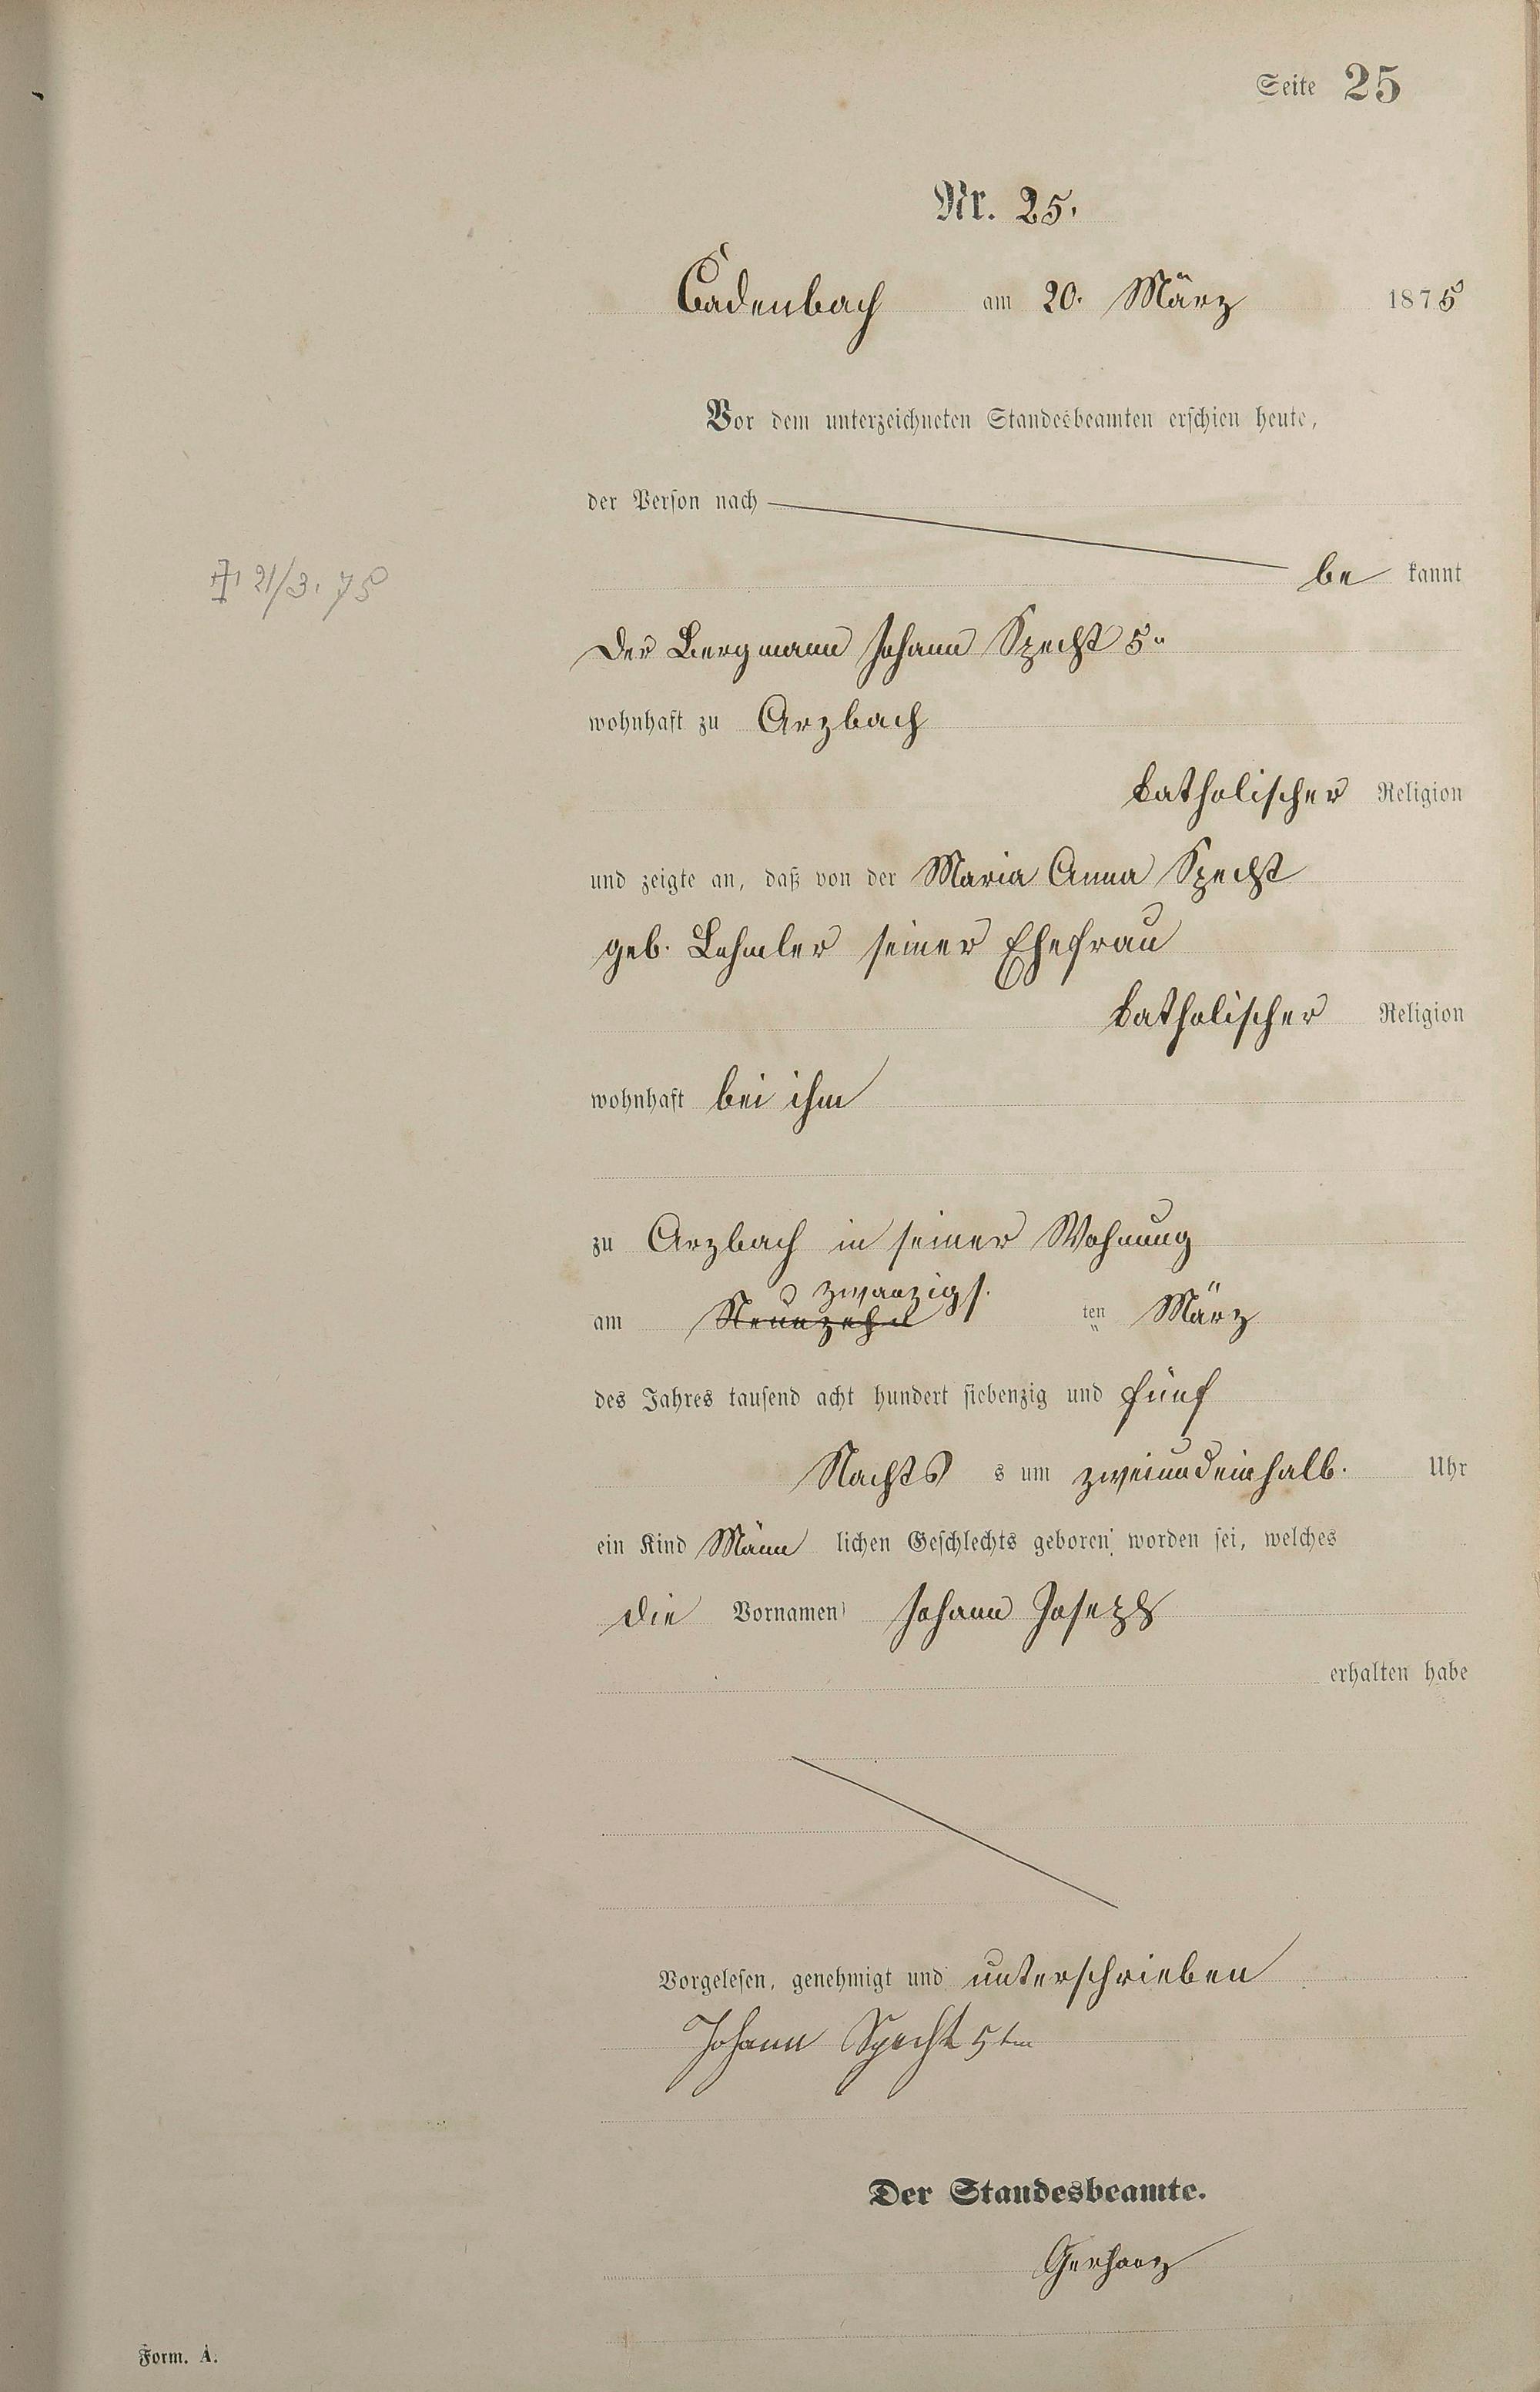 Seite 25
Nr. 25.
Cadenbach am 20. März 1875
Vor dem unterzeichneten Standesbeamten erschien heute,
der Person nach
be kannt
† 21/3. 75
Der Bergmann Johann Specht 5"
wohnhaft zu Arzbach
katholischer Religion
und zeigte an, daß von der Maria Anna Specht
geb. Lehmler seiner Ehefrau
katholischer Religion
wohnhaft bei ihm
zu Arzbach in seiner Wohnung
zwanzigs.
am Neunzehn ten März
des Jahres tausend acht hundert siebenzig und fünf
Nachts s um zweiundeinhalb. Uhr
ein Kind Männ lichen Geschlechts geboren worden sei, welches
die Vornamen Johann Joseph
erhalten habe
Vorgelesen, genehmigt und unterschrieben
Johann Specht 5ten
Der Standesbeamte.
Gerharz
Form. A.